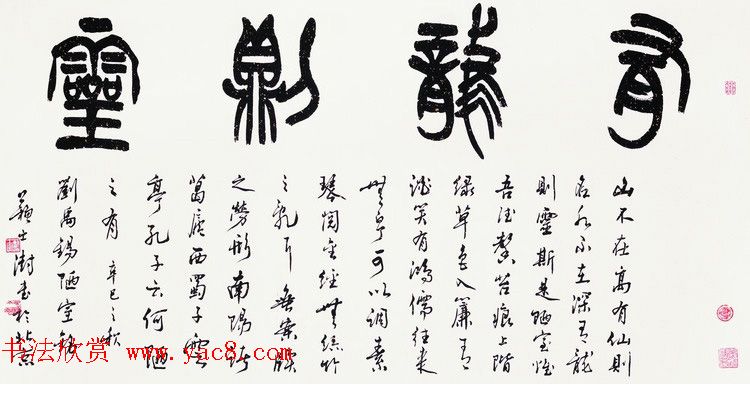 有龍則靈
山不在高有仙則
名水不在深有龍
則靈斯是陋室惟
吾德馨苔痕上階
綠草色入簾青
談笑有鴻儒往來
無白丁可以調素
琴閱金經無絲竹
之亂耳無案牘
之勞形南陽諸
葛廬西蜀子雲
亭孔子云何陋
之有 辛巳之秋
劉禹錫陋室銘
蘇士澍書於北京
书法欣赏 www.yac8.com